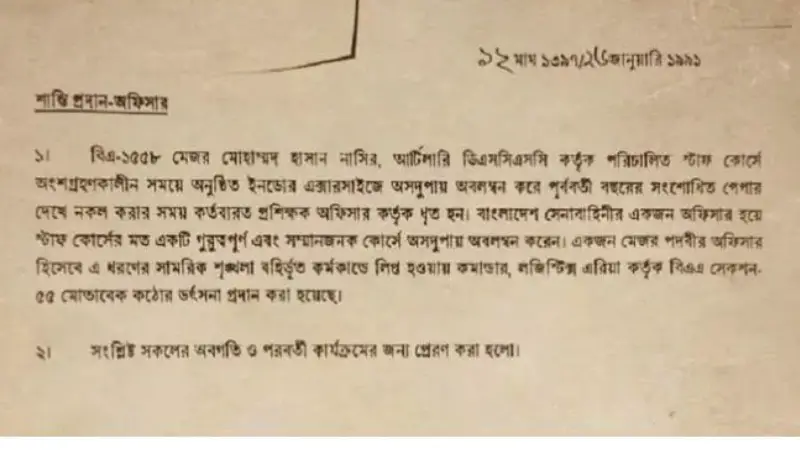 ১২ মাঘ ১৩৯৭/২৬ জানুয়ারি ১৯৯১
শাস্তি প্রদান-অফিসার
১। বিএ-১৫৫৮ মেজর মোহাম্মদ হাসান নাসির, আর্টিলারি ডিএসসিএসসি কর্তৃক পরিচালিত স্টাফ কোর্সে
অংশগ্রহণকালীন সময়ে অনুষ্ঠিত ইনডোর এক্সারসাইজে অসদুপায় অবলম্বন করে পূর্ববর্তী বছরের সংশোধিত পেপার
দেখে নকল করার সময় কর্তব্যরত প্রশিক্ষক অফিসার কর্তৃক ধৃত হন। বাংলাদেশ সেনাবাহিনীর একজন অফিসার হয়ে
স্টাফ কোর্সের মত একটি গুরুত্বপূর্ণ এবং সম্মানজনক কোর্সে অসদুপায় অবলম্বন করেন। একজন মেজর পদবীর অফিসার
হিসেবে এ ধরণের সামরিক শৃঙ্খলা বহির্ভূত কর্মকান্ডে লিপ্ত হওয়ায় কমান্ডার, লজিস্টিক্স এরিয়া কর্তৃক বিএএ সেকশন-
৫৫ মোতাবেক কঠোর ভর্ৎসনা প্রদান করা হয়েছে।
২। সংশ্লিষ্ট সকলের অবগতি ও পরবর্তী কার্যক্রমের জন্য প্রেরণ করা হলো।